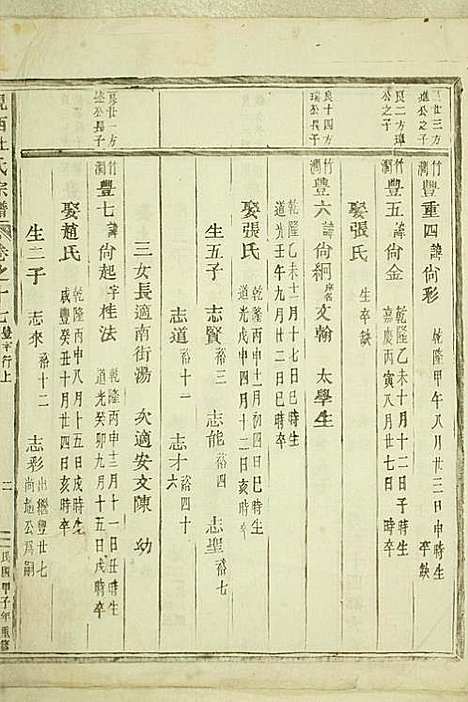 竹澗 豐重四 諱尙彩 乾隆甲午八月廿三日申時生 卒缺
良二方璉公之子
竹澗 豐五 諱尙金 乾隆乙未十月十二日子時生 嘉慶丙寅八月廿七日 時卒
娶張氏 生卒缺
良十四方瑞公長子
竹澗 豐六 諱尙絅 文翰 太學生
乾隆乙未十一月十七日巳時生 道光壬午九月廿二日未時卒
娶張氏 乾隆丙申十二月初四日巳時生 道光戊申四月十二日亥時卒
生五子 志賢 裕三 志能 裕四 志聖 裕七
志道 裕十一 志才 裕四十六
三女長適南街湯 次適安文陳 幼
竹澗 豐七 諱尙起 字桂法 乾隆丙申十二月十一日丑時生 道光癸卯九月十五日戌時卒
娶趙氏 乾隆丙申八月十五日戌時生 咸豐癸丑十月廿四日亥時卒
生二子 志來 裕十二 志彩 出繼豐廿七尙超公爲嗣
西杜氏宗譜 卷之十七 豐字行上 二 民國甲子年重修